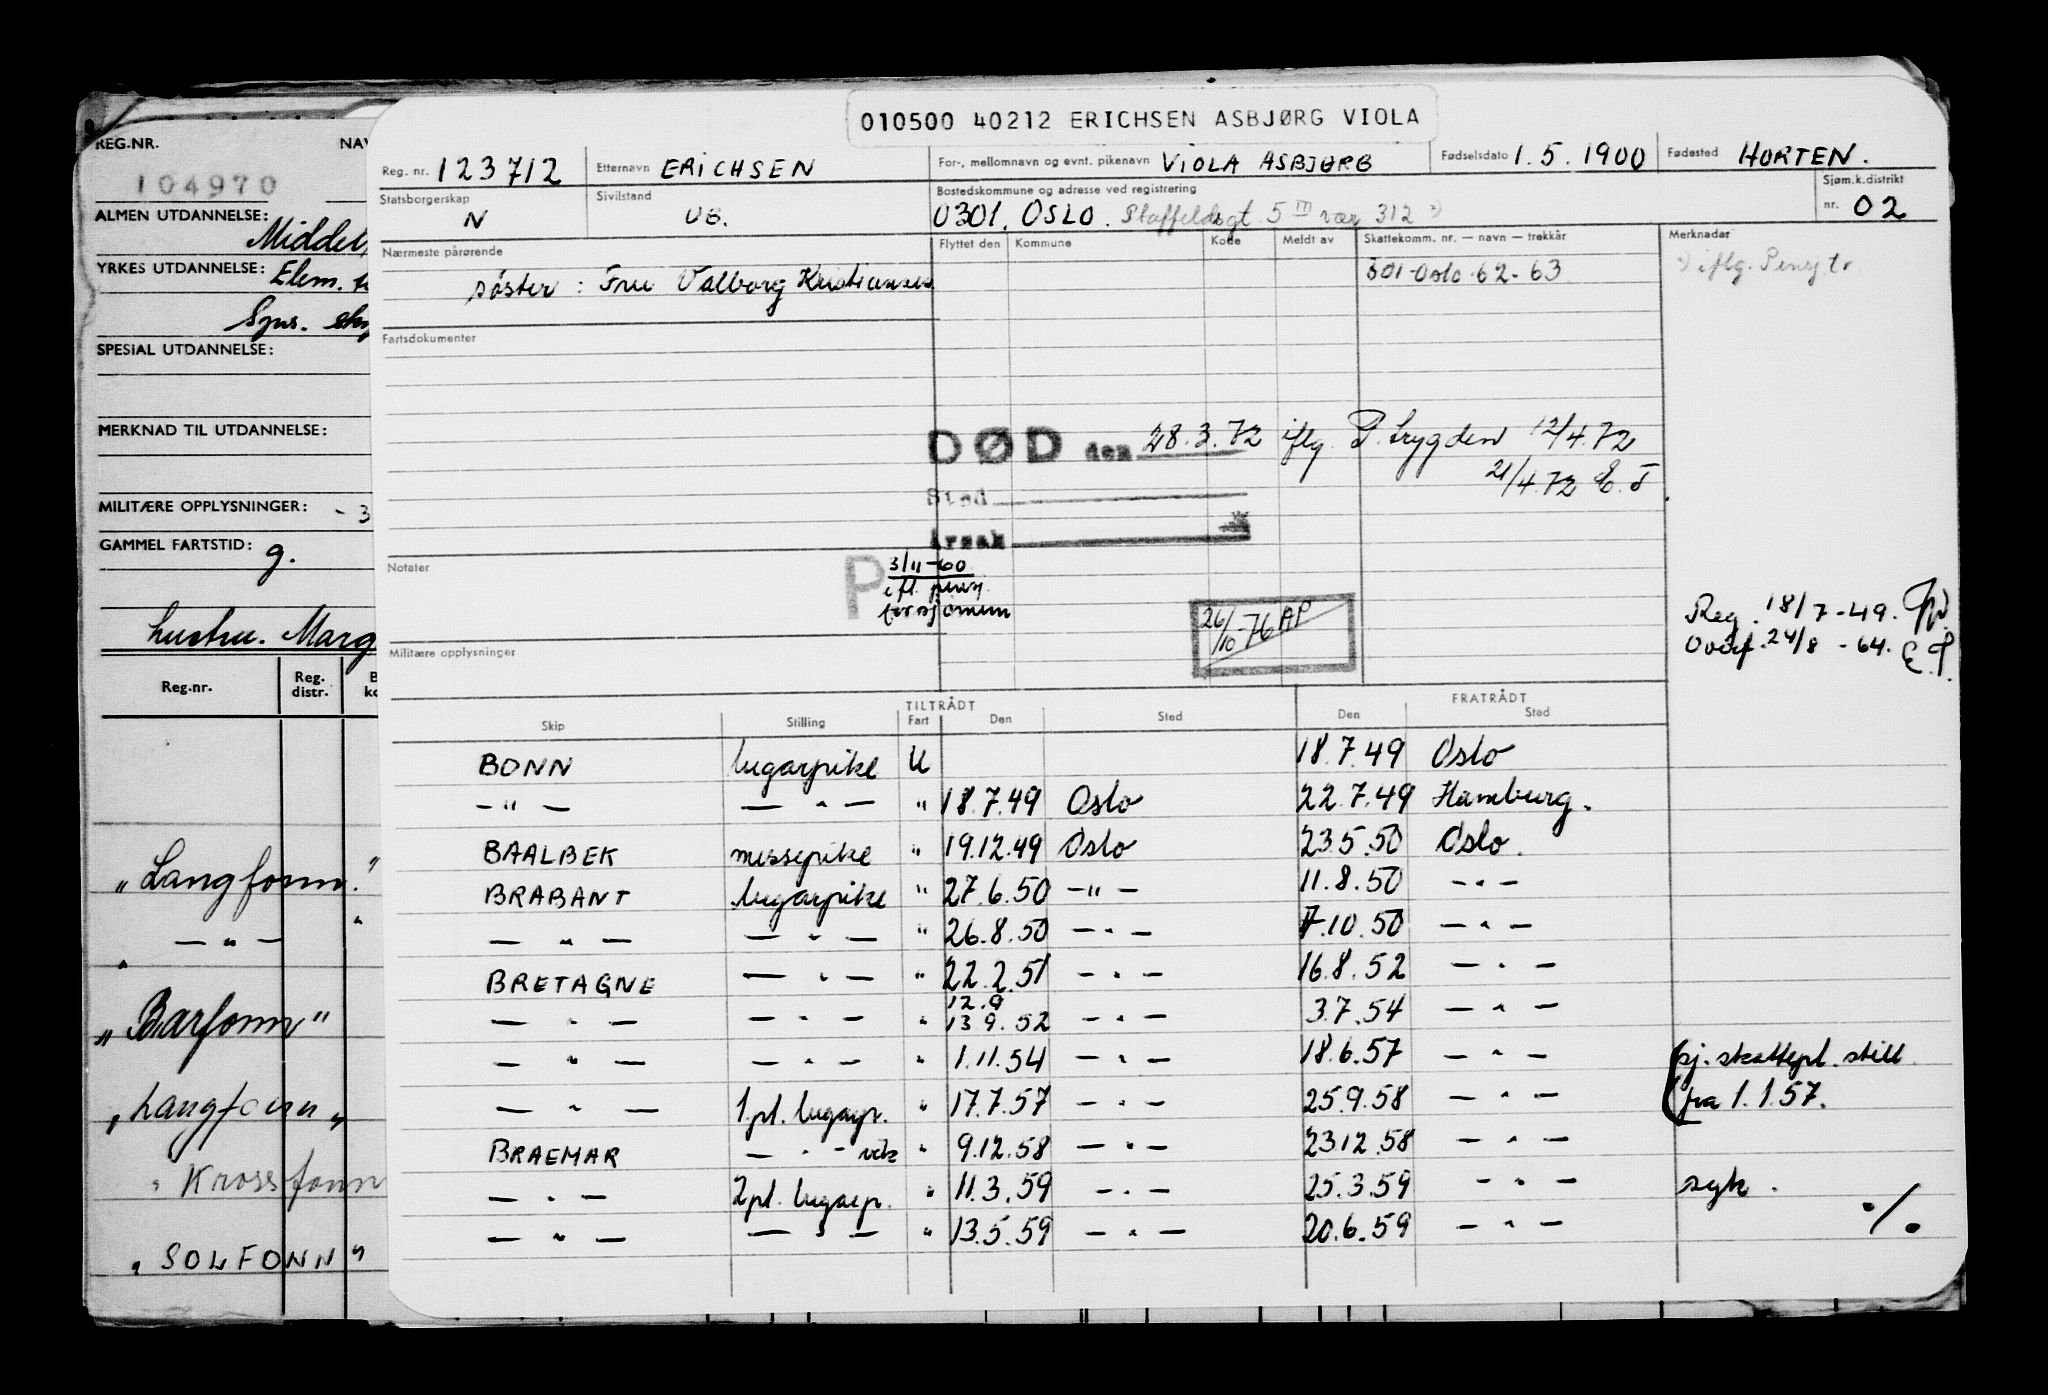 010500 40212 ERICHSEN ASBJØRG VIOLA
Reg. nr. 123712 Etternavn ERICHSEN For-, mellomnavn og evnt. pikenavn VIOLA ASBJØRG Fødselsdato 1.5.1900 Fødested HORTEN.
Statsborgerskap N Sivilstand UG. Bostedskommune og adresse ved registrering 0301. OSLO. Staffeldsgt. 5 III vær 312 Sjøm.k.distrikt nr. 02
Nærmeste pårørende Flyttet den Kommune Kode Meldt av Skattekomm. nr. — navn — trekkår Merknadar
søster: Fru Valborg Kristiansen 301-Oslo-62-63 iflg. Pensj.tr
Fartsdokumenter
DØD den 28.3.72 iflg. P. trygden 12/4.72
21/4.72 E.T.
Sted
Årsak
Notater P 3/11-60
ifl. pensj.
for sjømenn
26/10-76 AP
Reg. 18/7-49.
Overf. 24/8-64.
Militære opplysninger
TILTRÅDT FRATRÅDT
Skip Stilling Fart Den Sted Den Sted
BONN lugarpike U 18.7.49 Oslo
—"— —"— " 18.7.49 Oslo 22.7.49 Hamburg.
BAALBEK messepike " 19.12.49 Oslo 23.5.50 Oslo.
BRABANT lugarpike " 27.6.50 —"— 11.8.50 —"—
—"— —"— " 26.8.50 —"— 7.10.50 —"—
BRETAGNE —"— " 22.2.51 —"— 16.8.52 —"—
12.9
—"— —"— " 13.9.52 —"— 3.7.54 —"—
—"— —"— " 1.11.54 —"— 18.6.57 —"— sj. skattepl. still.
—"— 1.pl. lugarp. " 17.7.57 —"— 25.9.58 —"— fra 1.1.57.
BRAEMAR —"— vik " 9.12.58 —"— 23.12.58 —"—
—"— 2pl. lugarp. " 11.3.59 —"— 25.3.59 —"— syk.
—"— —"— " 13.5.59 —"— 20.6.59 —"— ./.
REG.NR. NAV
104970
ALMEN UTDANNELSE:
Middel
YRKES UTDANNELSE: Elem.
Spes.
SPESIAL UTDANNELSE:
MERKNAD TIL UTDANNELSE:
MILITÆRE OPPLYSNINGER: - 3
GAMMEL FARTSTID: g.
hustru. Marg
Reg.nr. Reg. distr.
"Langfonn."
—"— "
"Barfonn"
"Langfonn"
" Krossfonn
"SOLFONN"